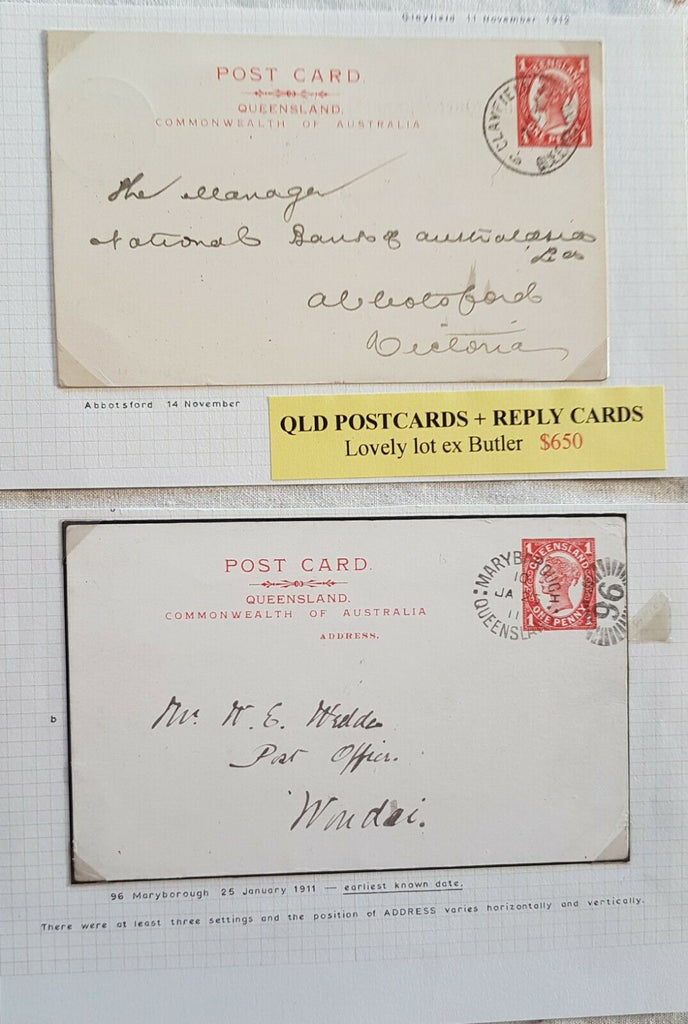 Clayfield 11 November 1912
POST CARD.
QUEENSLAND.
COMMONWEALTH OF AUSTRALIA
1 QUEENSLAND 1
ONE PENNY
CLAYFIE
The Manager
National Bank of Australasia
Abbotsford
Victoria
Abbotsford 14 November
QLD POSTCARDS + REPLY CARDS
Lovely lot ex Butler $650
POST CARD.
QUEENSLAND.
COMMONWEALTH OF AUSTRALIA
ADDRESS.
1 QUEENSLAND 1
1 ONE PENNY 1
MARYBOROUGH
JA
11
QUEENSLA
96
Mr. W. E. Wedde
Post Office.
Wondai.
b
96 Maryborough 25 January 1911 — earliest known date.
There were at least three settings and the position of ADDRESS varies horizontally and vertically.